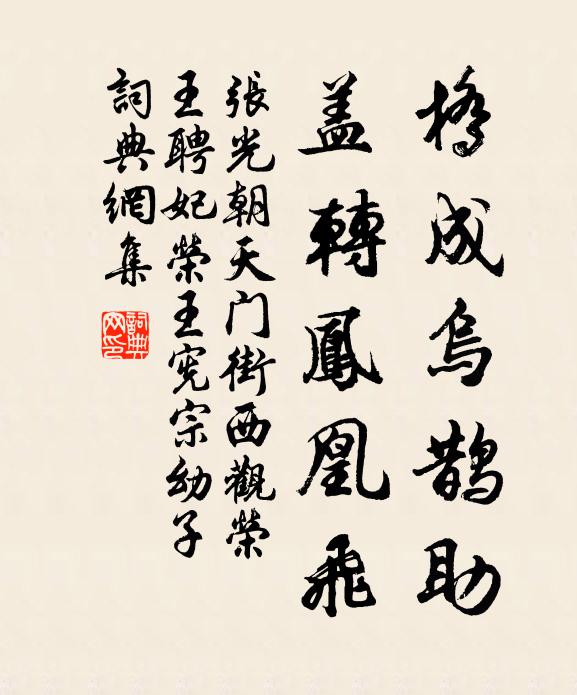 橋成烏鵲助
盖轉鳳凰飛
張光朝天门街西觀榮
王聘妃榮王宪宗幼子
詞典網集
詞典网印